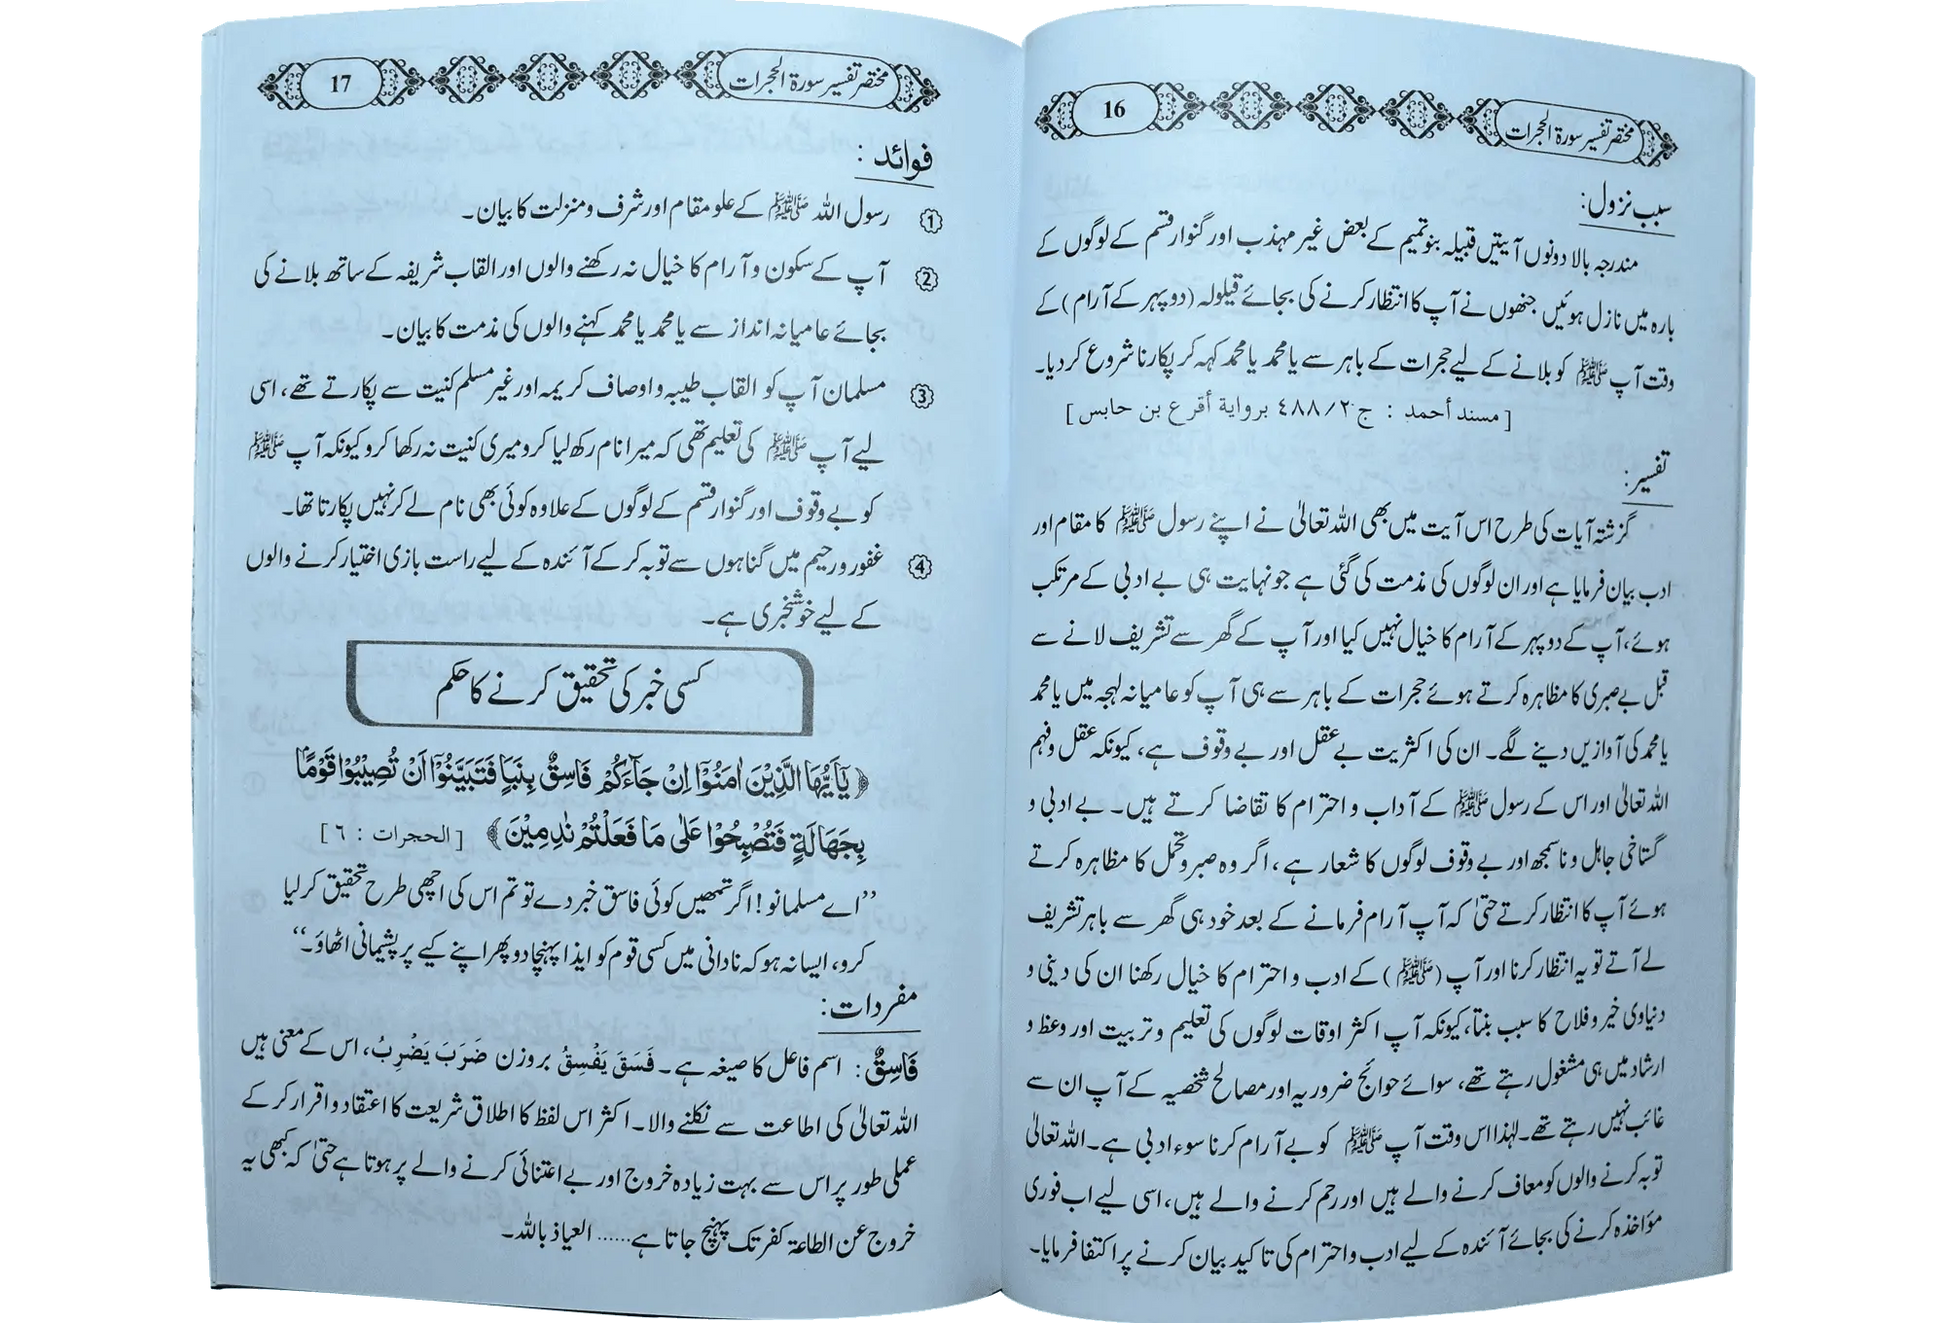 مختصر تفسیر سورۃ الحجرات
16
سبب نزول:
مندرجہ بالا دونوں آیتیں قبیلہ بنو تمیم کے بعض غیر مہذب اور گنوار قسم کے لوگوں کے
بارہ میں نازل ہوئیں جنھوں نے آپ کا انتظار کرنے کی بجائے قیلولہ (دوپہر کے آرام) کے
وقت آپ ﷺ کو بلانے کے لیے حجرات کے باہر سے یا محمد یا محمد کہہ کر پکارنا شروع کر دیا۔
[مسند أحمد : ج ٤٨٨/٢ برواية أقرع بن حابس]
تفسیر:
گزشتہ آیات کی طرح اس آیت میں بھی اللہ تعالیٰ نے اپنے رسول ﷺ کا مقام اور
ادب بیان فرمایا ہے اور ان لوگوں کی مذمت کی گئی ہے جو نہایت ہی بے ادبی کے مرتکب
ہوئے، آپ کے دوپہر کے آرام کا خیال نہیں کیا اور آپ کے گھر سے تشریف لانے سے
قبل بے صبری کا مظاہرہ کرتے ہوئے حجرات کے باہر سے ہی آپ کو عامیانہ لہجہ میں یا محمد
یا محمد کی آوازیں دینے لگے۔ ان کی اکثریت بے عقل اور بے وقوف ہے، کیونکہ عقل و فہم
اللہ تعالیٰ اور اس کے رسول ﷺ کے آداب و احترام کا تقاضا کرتے ہیں۔ بے ادبی و
گستاخی جاہل و ناسمجھ اور بے وقوف لوگوں کا شعار ہے، اگر وہ صبر و تحمل کا مظاہرہ کرتے
ہوئے آپ کا انتظار کرتے حتیٰ کہ آپ آرام فرمانے کے بعد خود ہی گھر سے باہر تشریف
لے آتے تو یہ انتظار کرنا اور آپ (ﷺ) کے ادب و احترام کا خیال رکھنا ان کی دینی و
دنیاوی خیر و فلاح کا سبب بنتا، کیونکہ آپ اکثر اوقات لوگوں کی تعلیم و تربیت اور وعظ و
ارشاد میں ہی مشغول رہتے تھے، سوائے حوائج ضروریہ اور مصالح شخصیہ کے آپ ان سے
غائب نہیں رہتے تھے۔ لہٰذا اس وقت آپ ﷺ کو بے آرام کرنا سوء ادبی ہے۔ اللہ تعالیٰ
توبہ کرنے والوں کو معاف کرنے والے ہیں اور رحم کرنے والے ہیں، اسی لیے اب فوری
مؤاخذہ کرنے کی بجائے آئندہ کے لیے ادب و احترام کی تاکید بیان کرنے پر اکتفا فرمایا۔
مختصر تفسیر سورۃ الحجرات
17
فوائد:
① رسول اللہ ﷺ کے علو مقام اور شرف و منزلت کا بیان۔
② آپ کے سکون و آرام کا خیال نہ رکھنے والوں اور القاب شریفہ کے ساتھ بلانے کی
بجائے عامیانہ انداز سے یا محمد یا محمد کہنے والوں کی مذمت کا بیان۔
③ مسلمان آپ کو القاب طیبہ و اوصاف کریمہ اور غیر مسلم کنیت سے پکارتے تھے، اسی
لیے آپ ﷺ کی تعلیم تھی کہ میرا نام رکھ لیا کرو میری کنیت نہ رکھا کرو کیونکہ آپ ﷺ
کو بے وقوف اور گنوار قسم کے لوگوں کے علاوہ کوئی بھی نام لے کر نہیں پکارتا تھا۔
④ غفور و رحیم میں گناہوں سے توبہ کر کے آئندہ کے لیے راست بازی اختیار کرنے والوں
کے لیے خوشخبری ہے۔
کسی خبر کی تحقیق کرنے کا حکم
﴿يٰٓاَيُّهَا الَّذِيْنَ اٰمَنُوْٓا اِنْ جَآءَكُمْ فَاسِقٌۢ بِنَبَاٍ فَتَبَيَّنُوْٓا اَنْ تُصِيْبُوْا قَوْمًۢا
بِجَهَالَةٍ فَتُصْبِحُوْا عَلٰى مَا فَعَلْتُمْ نٰدِمِيْنَ﴾ [الحجرات : ٦]
”اے مسلمانو! اگر تمھیں کوئی فاسق خبر دے تو تم اس کی اچھی طرح تحقیق کر لیا
کرو، ایسا نہ ہو کہ نادانی میں کسی قوم کو ایذا پہنچا دو پھر اپنے کیے پر پشیمانی اٹھاؤ۔“
مفردات:
فَاسِقٌ: اسم فاعل کا صیغہ ہے۔ فَسَقَ يَفْسِقُ بروزن ضَرَبَ يَضْرِبُ، اس کے معنی ہیں
اللہ تعالیٰ کی اطاعت سے نکلنے والا۔ اکثر اس لفظ کا اطلاق شریعت کا اعتقاد و اقرار کر کے
عملی طور پر اس سے بہت زیادہ خروج اور بے اعتنائی کرنے والے پر ہوتا ہے حتیٰ کہ کبھی یہ
خروج عن الطاعۃ کفر تک پہنچ جاتا ہے...... العیاذ باللہ۔